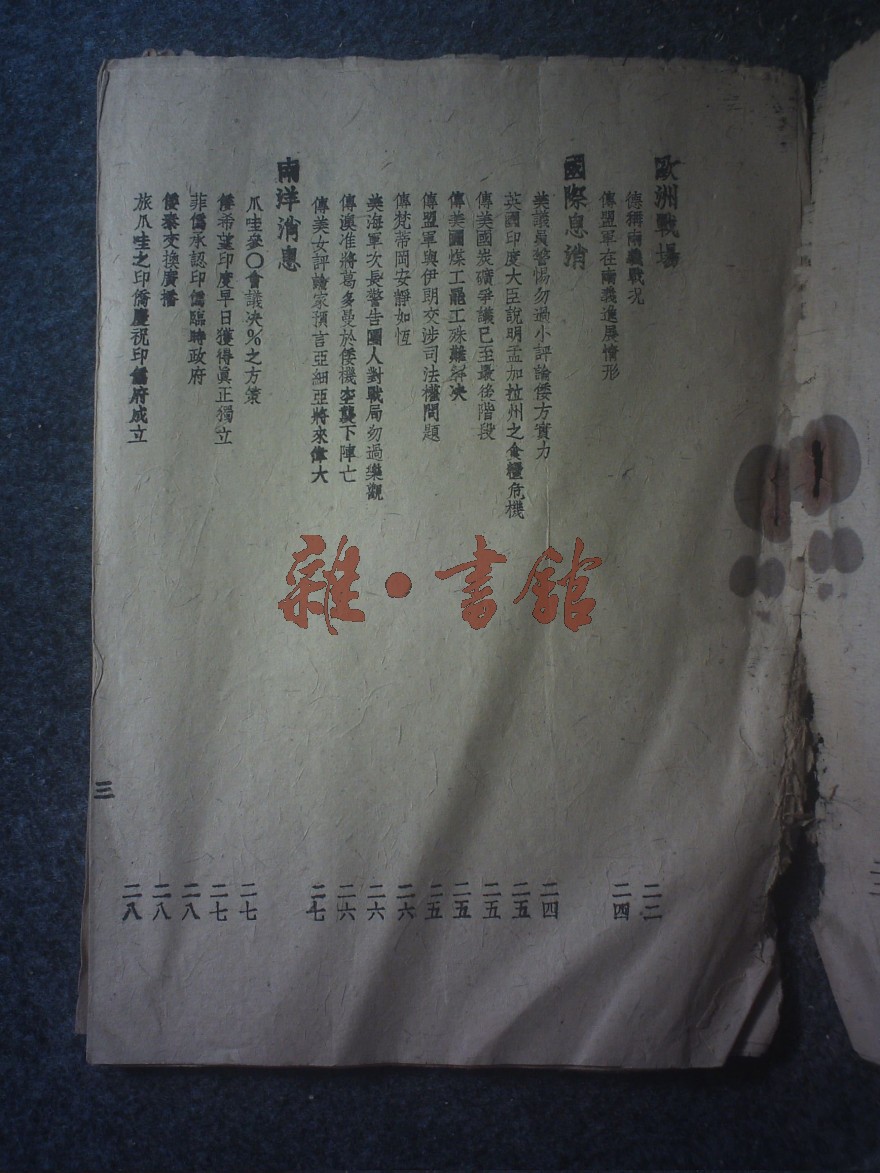 歐洲戰場
德稱南義戰况 二二
傳盟軍在南義進展情形 二四
國際息消
美議員警惕勿過小評論倭方實力 二四
英國印度大臣說明孟加拉州之食糧危機 二五
傳美國炭礦爭議已至最後階段 二五
傳美國煤工罷工殊難解决 二五
傳盟軍與伊朗交涉司法權問題 二五
傳梵蒂岡安靜如恆 二六
美海軍次長警告國人對戰局勿過樂觀 二六
傳澳准將葛多曼於倭機空襲下陣亡 二六
傳美女評論家預言亞細亞將來偉大 二七
南洋消息
爪哇參〇會議决%之方案 二七
倭希望印度早日獲得眞正獨立 二七
菲僞承認印僞臨時政府 二八
倭泰交換廣播 二八
旅爪哇之印僑慶祝印僞府成立 二八
三
雜·書館